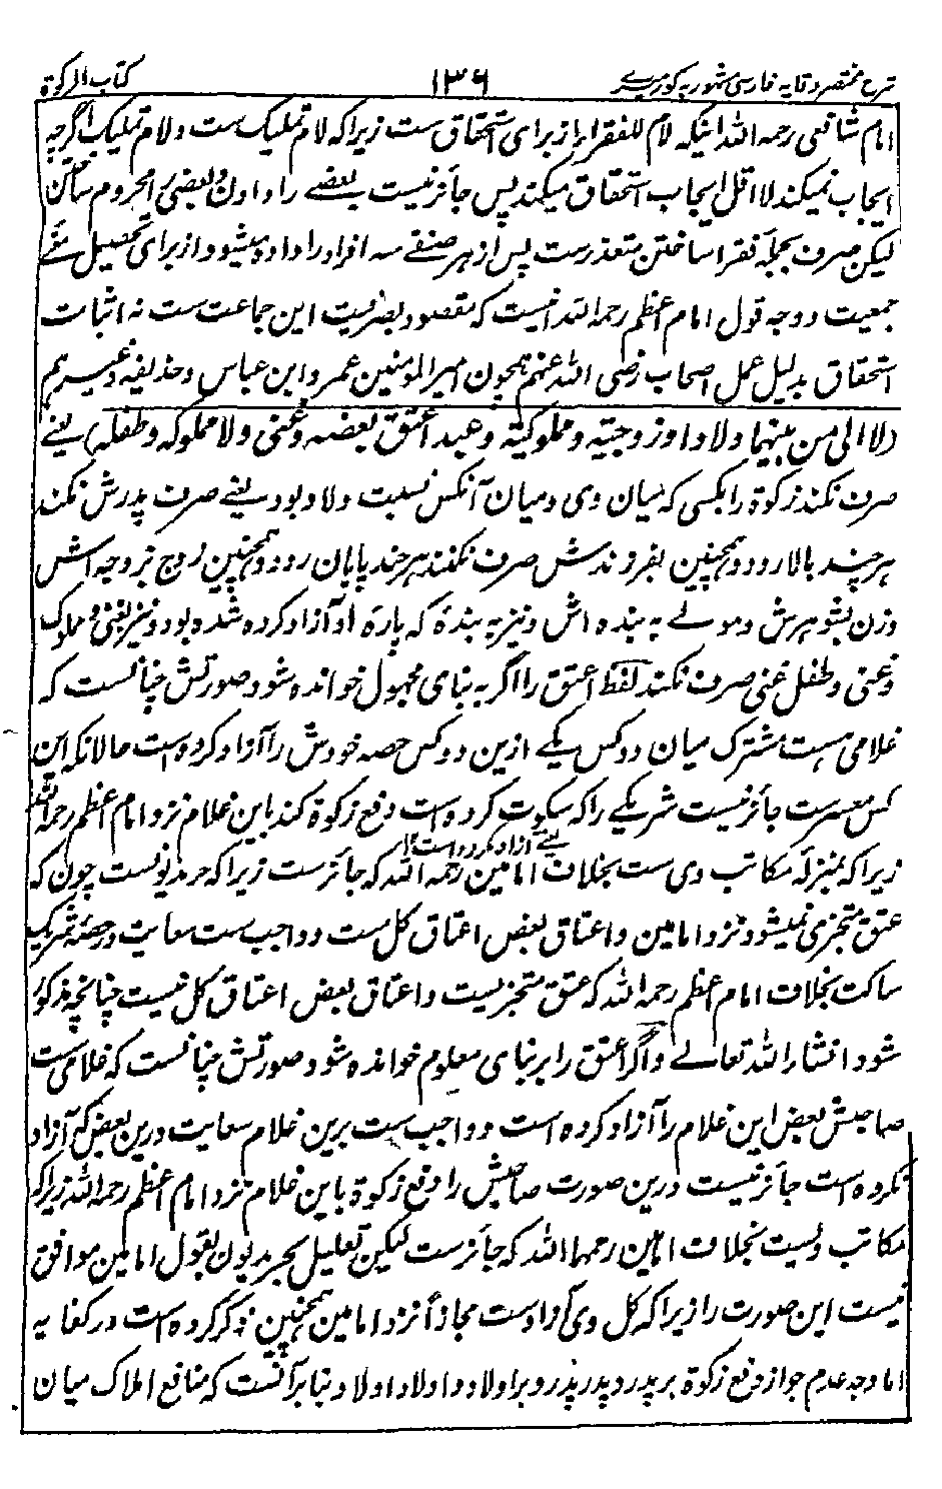 شرح مختصر وقایه فارسی مشهور به کور میرے ۱۳۶ کتاب الزکوة
امام شافعی رحمه الله اینکه لام للفقراء از برای استحقاق ست زیرا که لام تملیک ست و لام تملیک اگرچه
ایجاب نمیکند لا اقل ایجاب استحقاق میکند پس جائز نیست بعضے را دادن و بعضی را محروم ساختن
لیکن صرف بجمله فقرا ساختن متعذر ست پس از هر صنفے سه افراد را داده میشود از برای تحصیل معنے
جمعیت و وجه قول امام اعظم رحمه الله انیست که مقصود بصرفیت این جماعت ست نه اثبات
استحقاق بدلیل عمل اصحاب رضی الله عنهم همچون امیر المؤمنین عمر و ابن عباس و حذیفه و غیرهم
(لا الی من بینهما ولاد او زوجیته و مملوکیته و عبد اعتق بعضه و غنی و لا مملوکه و طفله) یعنے
صرف نکند زکوة را بکسی که میان وی و میان آنکس نسبت ولاد بود یعنے صرف پدرش نکند
هر چند بالا رود و همچنین بفرزندش صرف نکنند هر چند پایان رود و همچنین زوج بزوجه اش
و زن بشوهرش و مولے به بنده اش و نیز به بندهٔ که پارهٔ او آزاد کرده شده بود و نیز بغنی و مملوک
غنی و طفل غنی صرف نکند لفظ اعتق را اگر به بنای مجهول خوانده شود صورتش چنانست که
غلامی هست مشترک میان دو کس یکے ازین دو کس حصه خودش را آزاد کرده است حالانکه این
کس معسر ست جائز نیست شریکے را که سکوت کرده است دفع زکوة کند باین غلام نزد امام اعظم رحمه الله
یعنے آزاد نکرده است ۱۲
زیرا که بمنزله مکاتب وی ست بخلاف امامین رحمه الله که جائز ست زیرا که حر مدیونست چون که
عتق متجزی نمیشود نزد امامین و اعتاق بعض اعتاق کل ست و واجب ست سعایت در حصه شریک
ساکت بخلاف امام اعظم رحمه الله که عتق متجزیست و اعتاق بعض اعتاق کل نیست چنانچه مذکور
شود انشاء الله تعالے و اگر اعتق را بر بنای معلوم خوانده شود صورتش چنانست که غلامی ست
صاحبش بعض این غلام را آزاد کرده است و واجب ست برین غلام سعایت درین بعض که آزاد
نکرده است جائز نیست درین صورت صاحبش را دفع زکوة باین غلام نزد امام اعظم رحمه الله زیرا که
مکاتب ویست بخلاف امامین رحمهما الله که جائز ست لیکن تعلیل بحر مدیون بقول امامین موافق
نیست این صورت را زیرا که کل وی آزاد ست مجازاً نزد امامین همچنین ذکر کرده است در کفایه
اما وجه عدم جواز دفع زکوة بر پدر و پدر پدر و بر اولاد و اولاد اولاد بنا بر آنست که منافع املاک میان